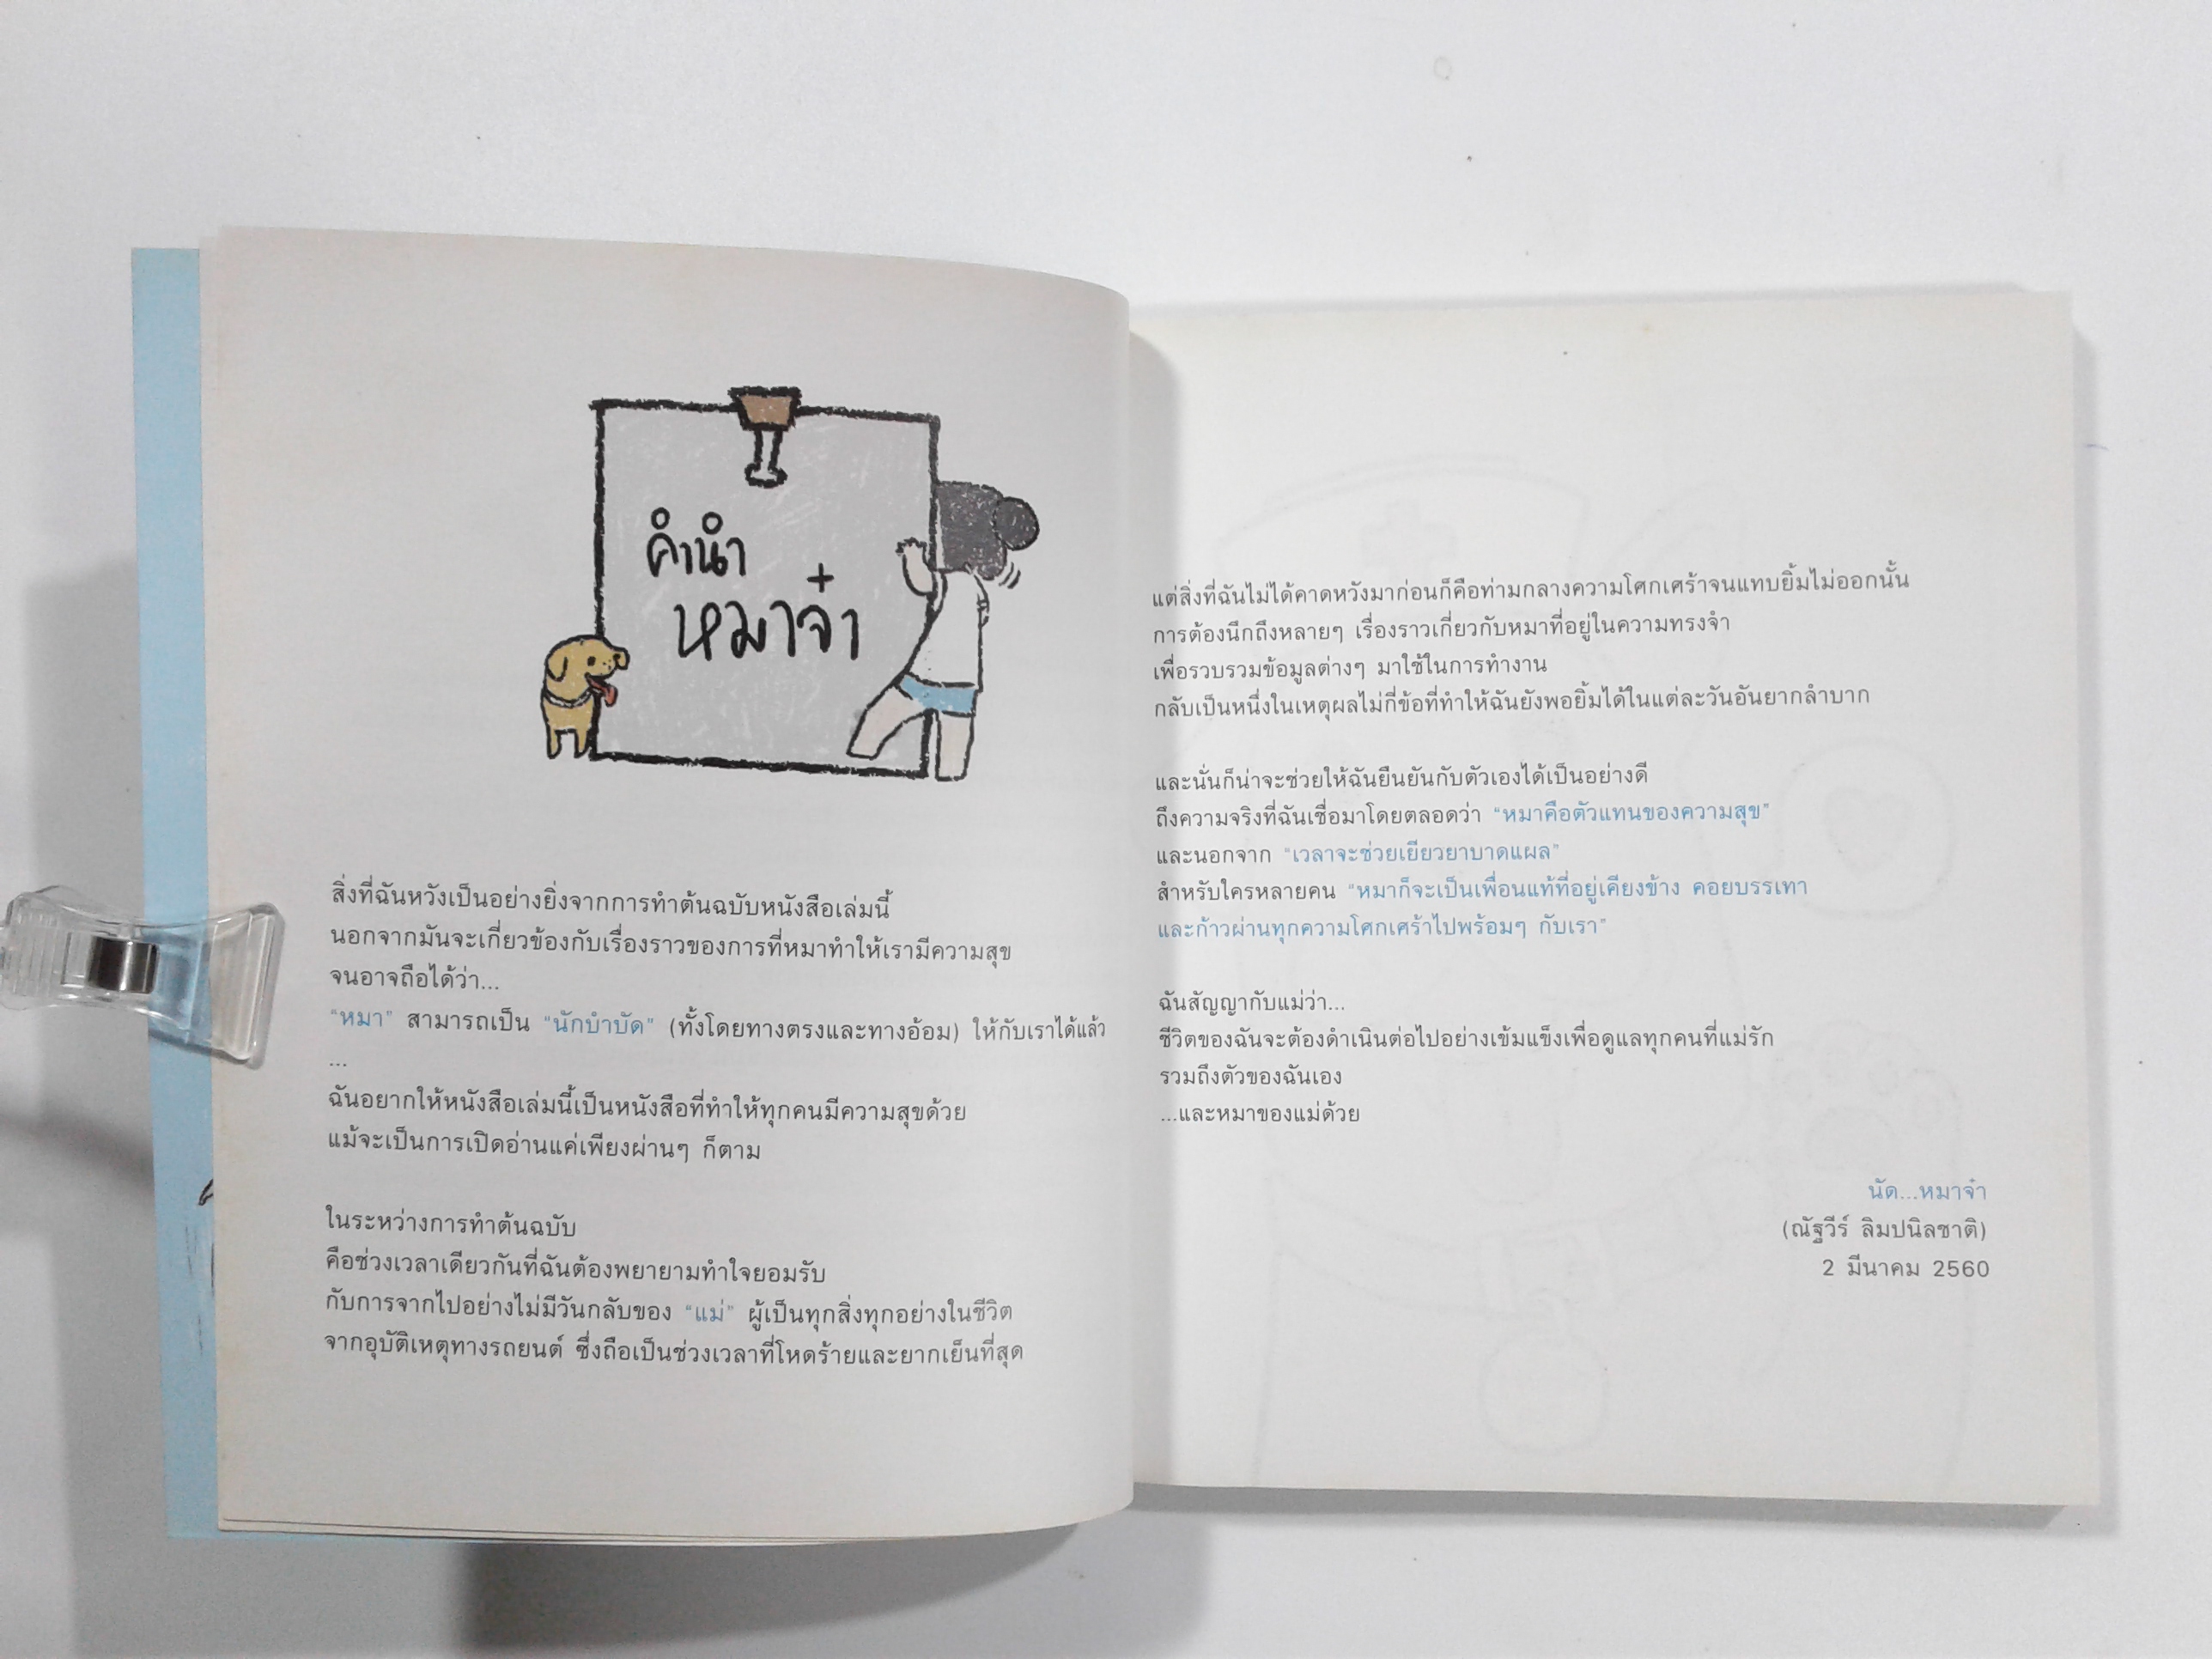 คำนำ
หมาจ๋า
สิ่งที่ฉันหวังเป็นอย่างยิ่งจากการทำต้นฉบับหนังสือเล่มนี้
นอกจากมันจะเกี่ยวข้องกับเรื่องราวของการที่หมาทำให้เรามีความสุข
จนอาจถือได้ว่า...
“หมา” สามารถเป็น “นักบำบัด” (ทั้งโดยทางตรงและทางอ้อม) ให้กับเราได้แล้ว
...
ฉันอยากให้หนังสือเล่มนี้เป็นหนังสือที่ทำให้ทุกคนมีความสุขด้วย
แม้จะเป็นการเปิดอ่านแค่เพียงผ่านๆ ก็ตาม
ในระหว่างการทำต้นฉบับ
คือช่วงเวลาเดียวกันที่ฉันต้องพยายามทำใจยอมรับ
กับการจากไปอย่างไม่มีวันกลับของ “แม่” ผู้เป็นทุกสิ่งทุกอย่างในชีวิต
จากอุบัติเหตุทางรถยนต์ ซึ่งถือเป็นช่วงเวลาที่โหดร้ายและยากเย็นที่สุด
แต่สิ่งที่ฉันไม่ได้คาดหวังมาก่อนก็คือท่ามกลางความโศกเศร้าจนแทบยิ้มไม่ออกนั้น
การต้องนึกถึงหลายๆ เรื่องราวเกี่ยวกับหมาที่อยู่ในความทรงจำ
เพื่อรวบรวมข้อมูลต่างๆ มาใช้ในการทำงาน
กลับเป็นหนึ่งในเหตุผลไม่กี่ข้อที่ทำให้ฉันยังพอยิ้มได้ในแต่ละวันอันยากลำบาก
และนั่นก็น่าจะช่วยให้ฉันยืนยันกับตัวเองได้เป็นอย่างดี
ถึงความจริงที่ฉันเชื่อมาโดยตลอดว่า “หมาคือตัวแทนของความสุข”
และนอกจาก “เวลาจะช่วยเยียวยาบาดแผล”
สำหรับใครหลายคน “หมาก็จะเป็นเพื่อนแท้ที่อยู่เคียงข้าง คอยบรรเทา
และก้าวผ่านทุกความโศกเศร้าไปพร้อมๆ กับเรา”
ฉันสัญญากับแม่ว่า...
ชีวิตของฉันจะต้องดำเนินต่อไปอย่างเข้มแข็งเพื่อดูแลทุกคนที่แม่รัก
รวมถึงตัวของฉันเอง
...และหมาของแม่ด้วย
นัด...หมาจ๋า
(ณัฐวีร์ ลิมปนิลชาติ)
2 มีนาคม 2560